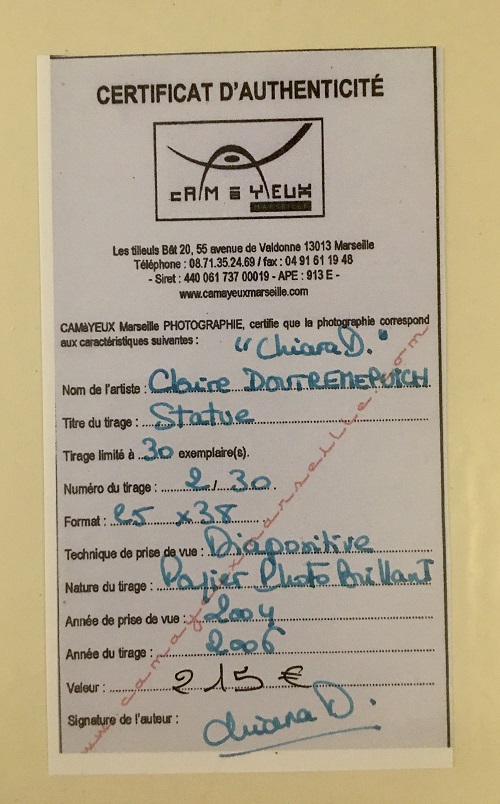 CERTIFICAT D'AUTHENTICITÉ
CAMèYEUX
MARSEILLE
Les tilleuls Bât 20, 55 avenue de Valdonne 13013 Marseille
Téléphone : 08.71.35.24.69 / fax : 04 91 61 19 48
- Siret : 440 061 737 00019 - APE : 913 E -
www.camayeuxmarseille.com
CAMàYEUX Marseille PHOTOGRAPHIE, certifie que la photographie correspond
aux caractéristiques suivantes :
"Chiara D."
Nom de l'artiste : Claire DOUTREMEPUICH
Titre du tirage : Statue
Tirage limité à 30 exemplaire(s).
Numéro du tirage : 2/30.
Format : 25 x 38
Technique de prise de vue : Diapositive
Nature du tirage : Papier Photo Brillant
Année de prise de vue : 2004
Année du tirage : 2006
Valeur : 215 €
Signature de l'auteur : Chiara D.
www.camayeuxmarseille.com